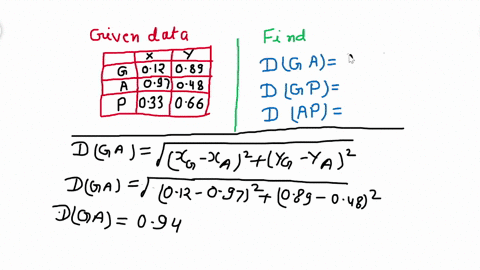 Given data
X Y
G 0.12 0.89
A 0.97 0.48
P 0.33 0.66
Find
D(GA)=
D(GP)=
D(AP)=
D(GA)=√(X_G-X_A)²+(Y_G-Y_A)²
D(GA)=√(0.12-0.97)²+(0.89-0.48)²
D(GA)= 0.94